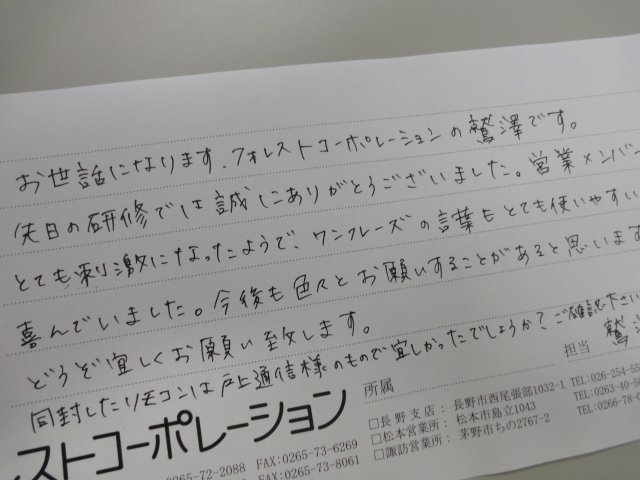 お世話になります.フォレストコーポレーションの鷲澤です。
先日の研修では誠にありがとうございました。営業メンバー
とても刺激になったようで、ワンフレーズの言葉もとても使いやすい
喜んでいました。今後も色々とお願いすることがあると思います
どうぞ宜しくお願い致します。
同封したリモコンは戸上通信様のもので宜しかったでしょうか?ご確認下さい
ストコーポレーション
所属
担当 鷲澤
□長野支店:長野市西尾張部1032-1 TEL:026-254-55
□松本営業所:松本市島立1043 TEL:0263-40-
□諏訪営業所:茅野市ちの2767-2 TEL:0266-78-0
0265-72-2088 FAX:0265-73-6269
FAX:0265-73-8061